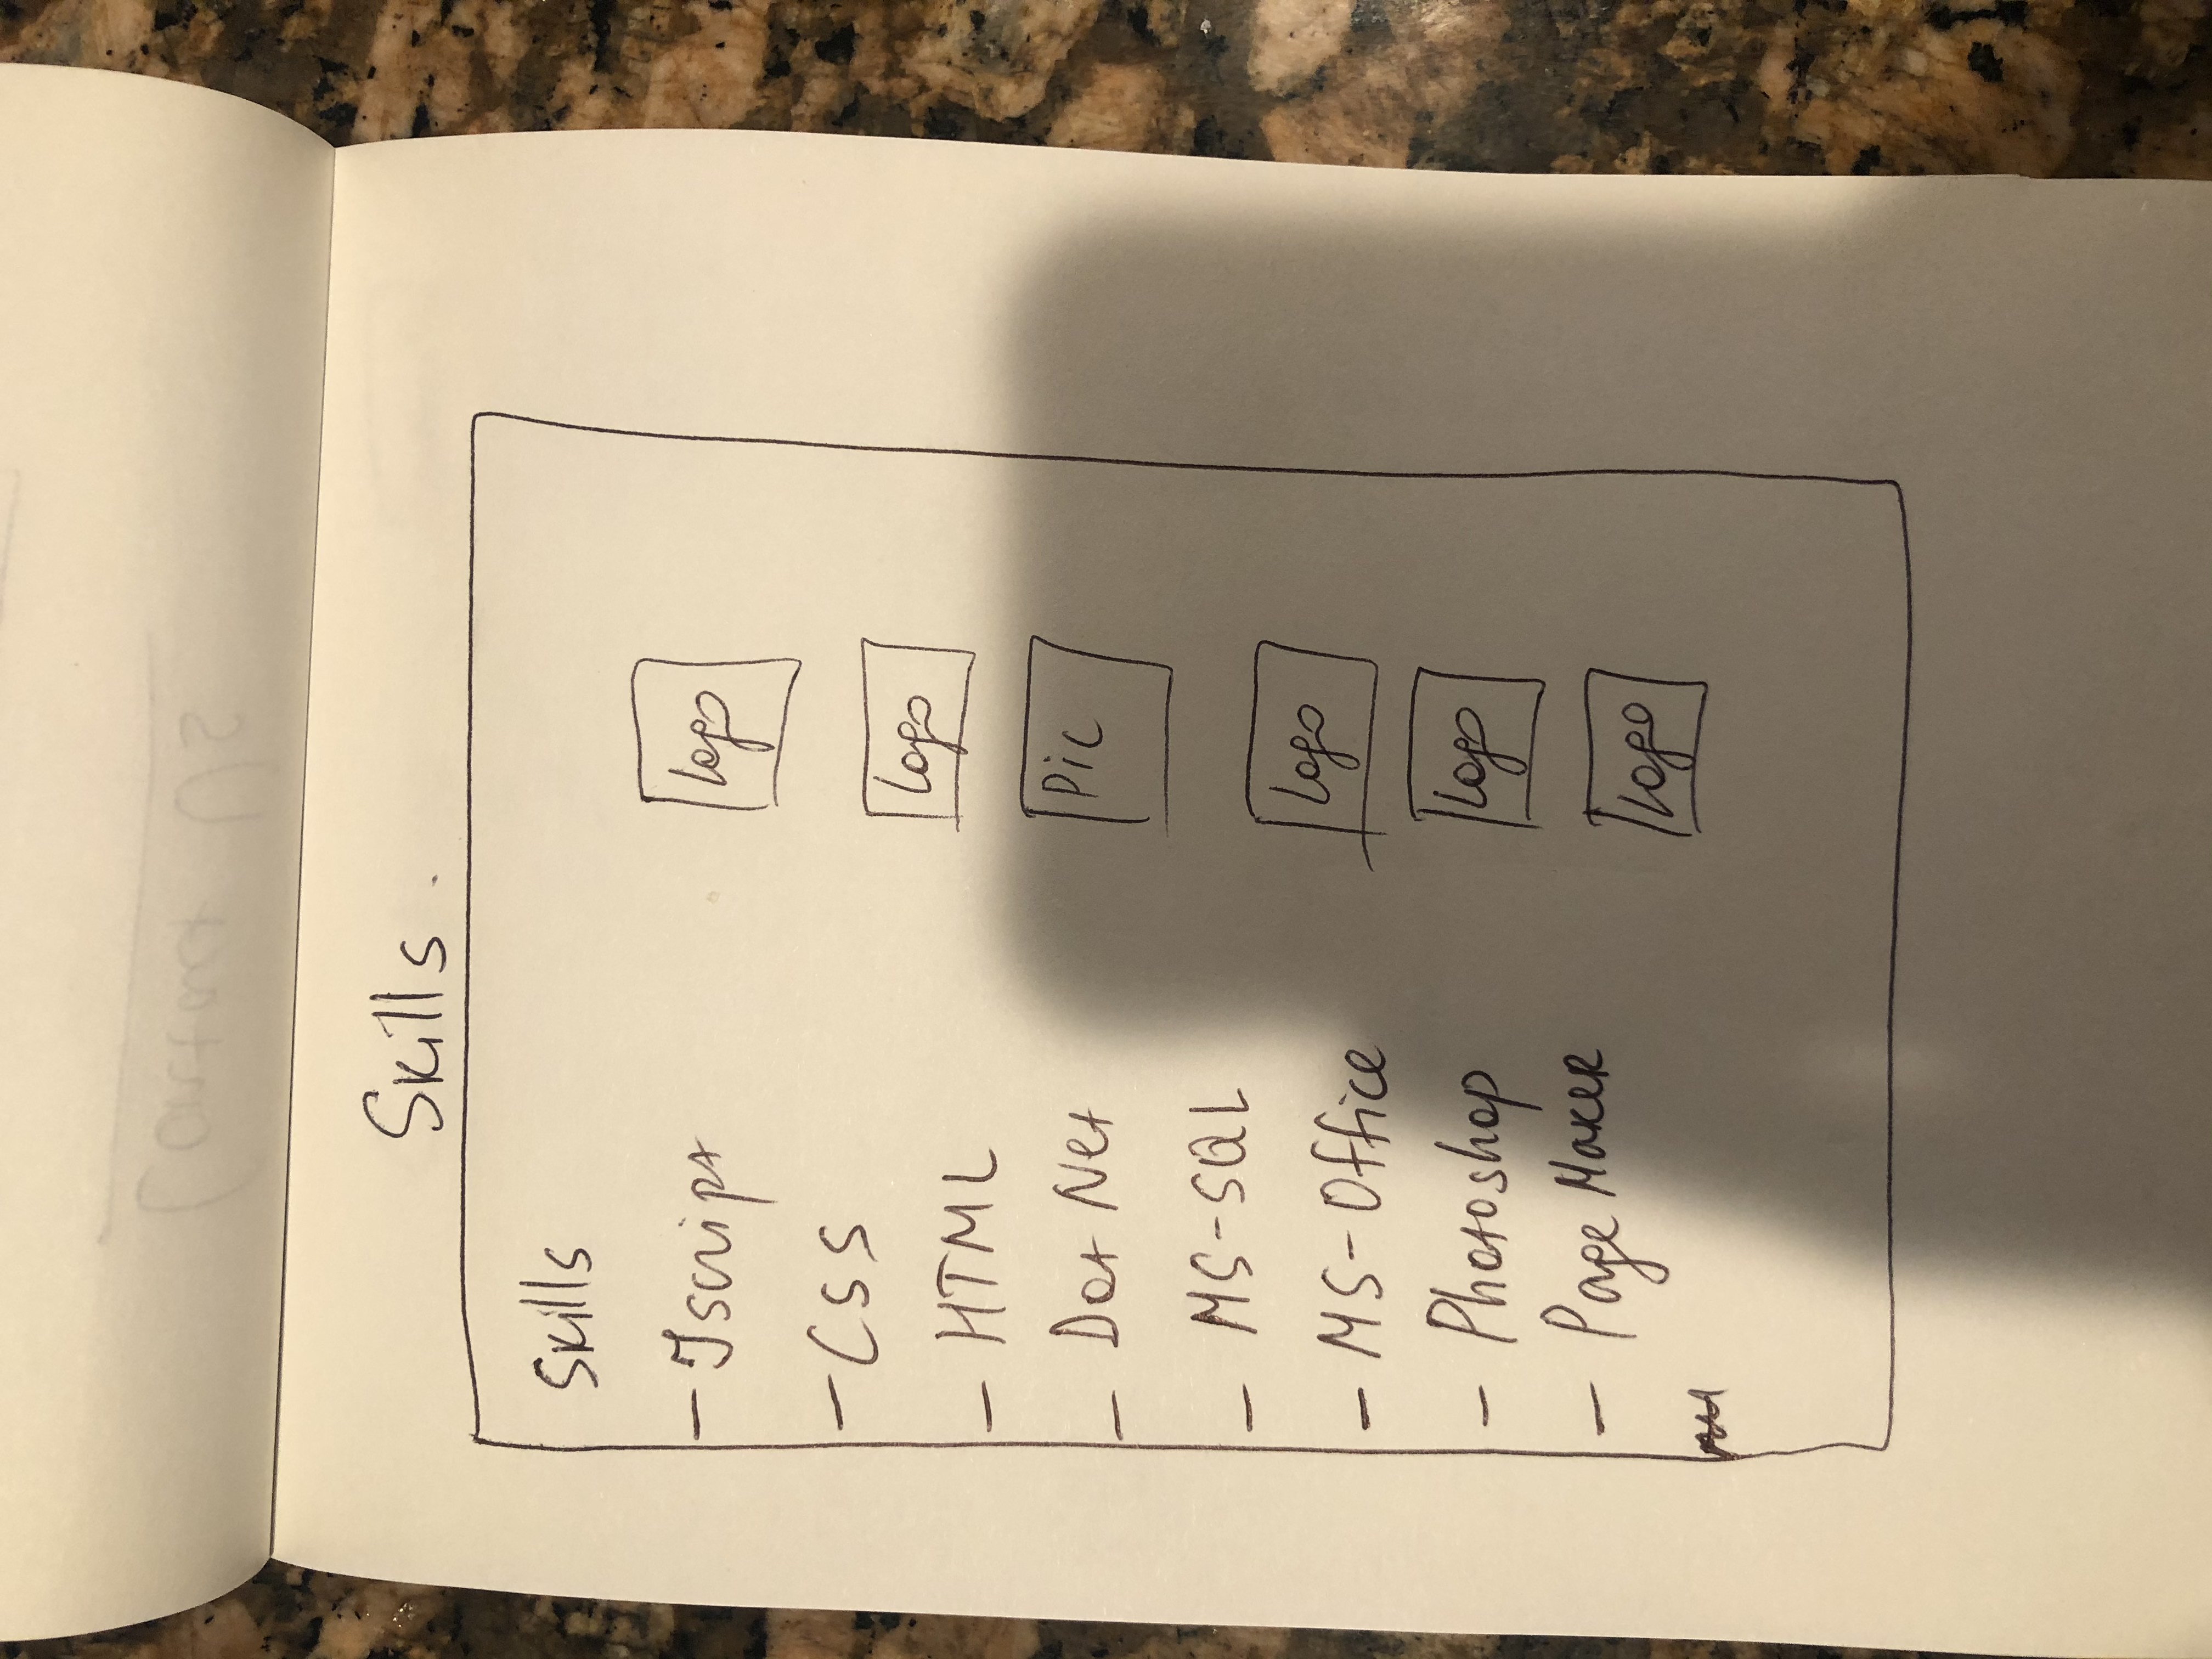 Contact Us
Skills.
Skills
- Jscript
- CSS
- HTML
- Dot Net
- MS-SQL
- MS-Office
- Photoshop
- Page Maker
logo
logo
Pic
logo
logo
logo